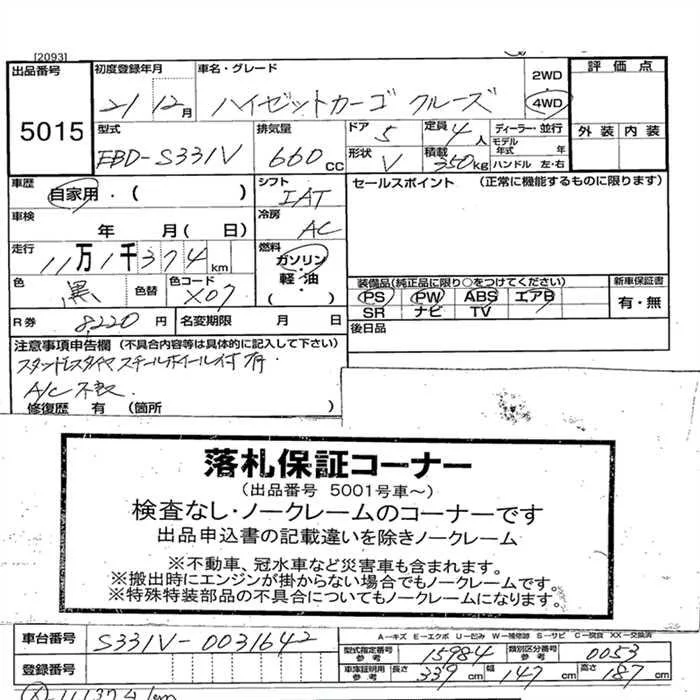 [2093]
出品番号 初度登録年月 車名・グレード 2WD 評価点
5015 21 12月 ハイゼットカーゴ クルーズ 4WD
型式 排気量 ドア 5 定員 4人 ディーラー・並行 外装 内装
モデル年式 年
EBD-S331V 660cc 形状 V 積載 350kg ハンドル 左・右
車歴 自家用・( ) シフト IAT セールスポイント (正常に機能するものに限ります)
車検 年 月(日) 冷房 AC
走行 11万1千374km 燃料 ガソリン・軽・油( )
装備品(純正品に限り○をつけてください) 新車保証書
色 黒 色替 色コード X07 PS PW ABS エアB 有・無
SR ナビ TV
R券 8220円 名変期限 月 日 後日品
注意事項申告欄 (不具合内容等は具体的に記入して下さい)
スタッドレスタイヤ スチールホイール付
A/C 不良
修復歴 有 (箇所 )
落札保証コーナー
(出品番号 5001号車~)
検査なし・ノークレームのコーナーです
出品申込書の記載違いを除きノークレーム
※不動車、冠水車など災害車も含まれます。
※搬出時にエンジンが掛からない場合でもノークレームです。
※特殊特装部品の不具合についてもノークレームになります。
A-キズ E-エクボ U-凹み W-補修跡 S-サビ C-腐食 XX-交換済
車台番号 S331V-0031642 型式指定番号 参考 15984 類別区分番号 参考 0053
登録番号 車庫証明用 参考 長さ 339cm 幅 147cm 高さ 187cm